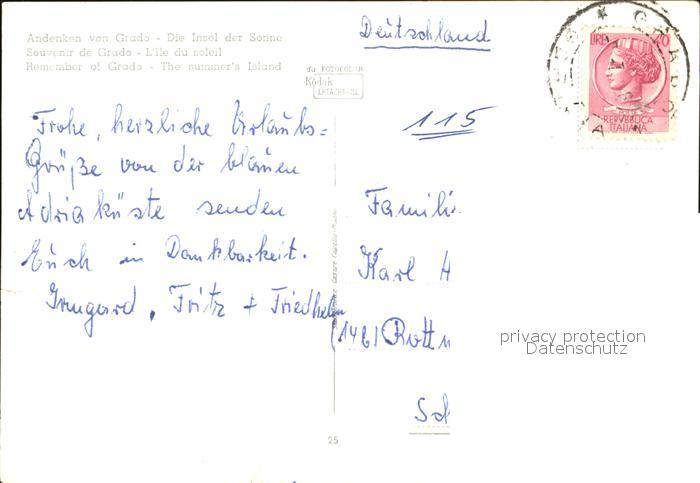 Andenken von Grado - Die Insel der Sonne
Souvenir de Grado - L'île du soleil
Remember of Grado - The summer's Island
da FOTOCOLOR
Kodak
EKTACHROME
Deutschland
LIRE 70
REPVBBLICA
ITALIANA
115
Frohe, herzliche Urlaubs=
Grüße von der blauen
Adriaküste senden
Euch in Dankbarkeit.
Irmgard, Fritz + Friedhelm
Famili
Karl H
Rottn
Sch
privacy protection
Datenschutz
25